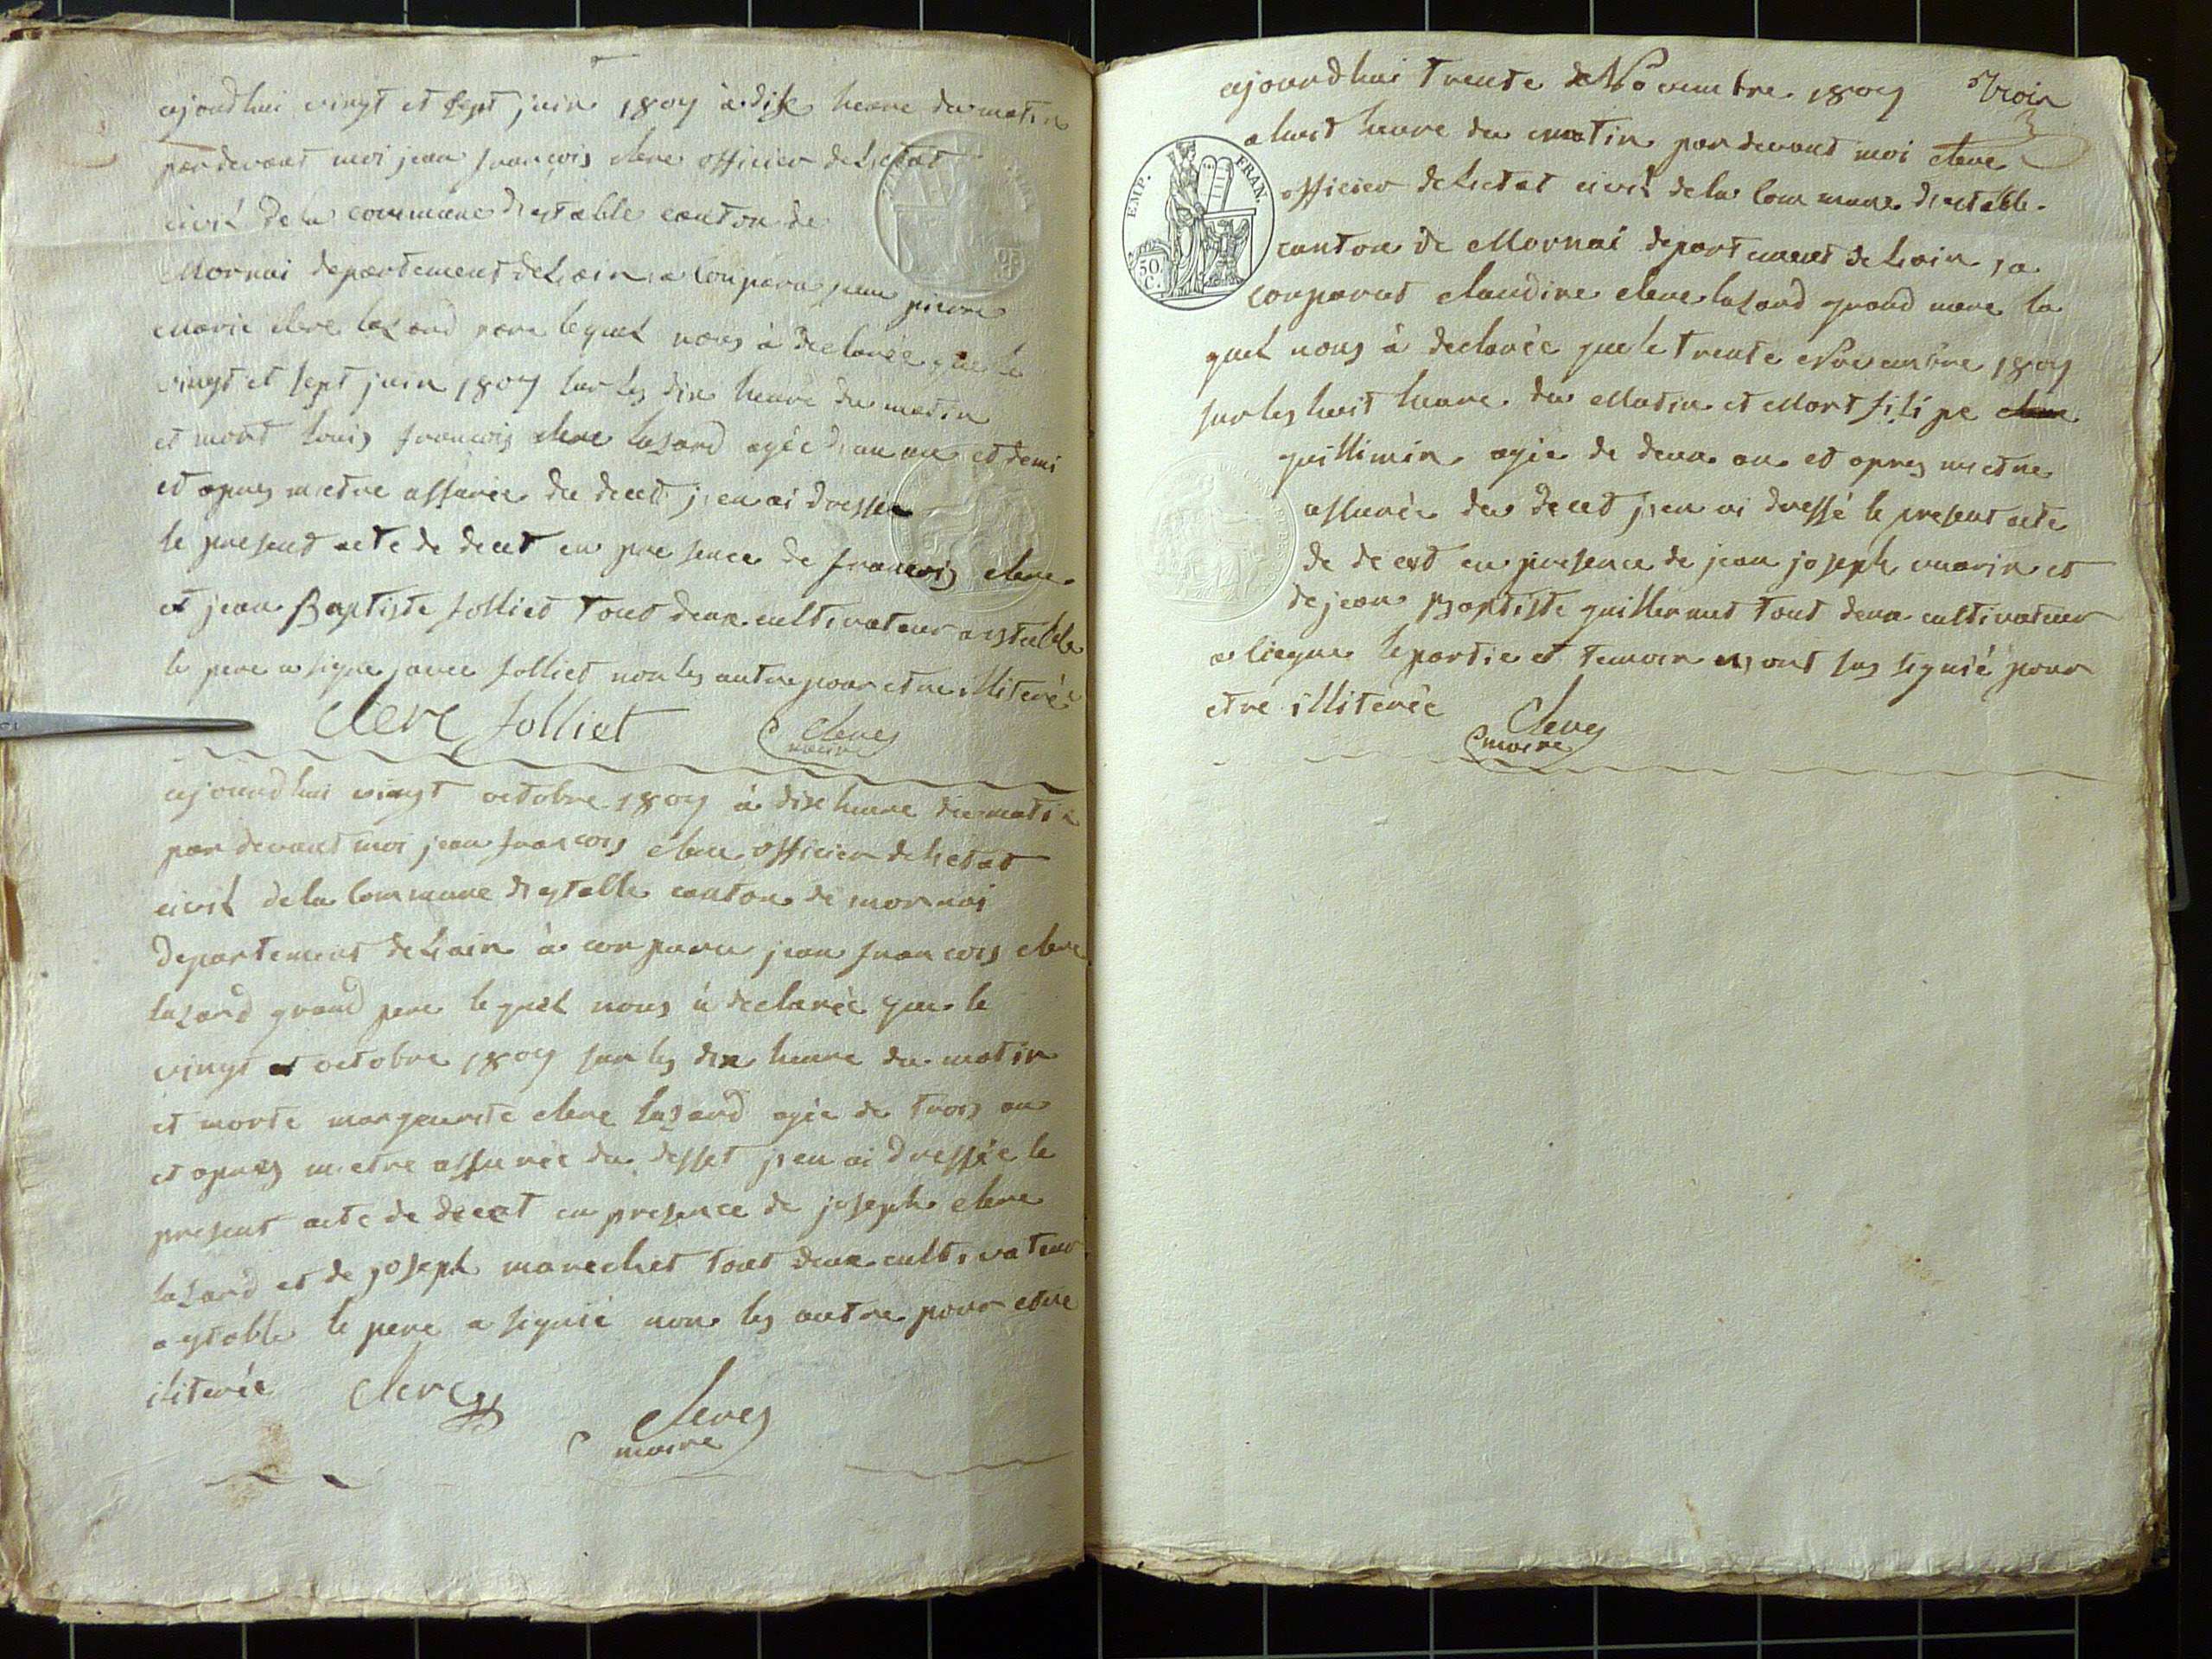 ajourdhui vingt et sept juin 1807 à dix heure du matin
par devant moi jean francois clerc officier de letat
civil de la commune destable canton de
Mornai departement de lain a conparu jean pierre
marie clerc lazard pere le quel nous à declarée que le
vingt et sept juin 1807 sur les dix heure du matin
et mort louis francois clerc lazard agée d'un an et demi
et apres m etre assurée du decet j en ai dressée
le present acte de decet en presence de francois clerc
et jean Baptiste Jolliet tout deux cultivateur a estable
le pere a signe avec Jolliet non les autre pour etre illiterée
Clerc Jolliet Clerc
maire
ajourdhui vingt octobre 1807 à dix heure du matin
par devant moi jean francois clerc officier de letat
civil de la commune destable canton de mornai
departement de lain à conparu jean francois clerc
lazard grand pere le quel nous à declarée que le
vingt octobre 1807 sur les dix heure du matin
et morte margeurite clerc lazard agée de trois an
et apres m etre assurée du desset j en ai dressée le
present acte de decet en presence de joseph clerc
lazard et de joseph marechet tout deux cultivateur
a estable le pere a signié non les autre pour etre
iliterée Clerc
Clerc
maire
ajourdhui trente de Novembre 1807 Trois
3
a huit heure du matin par devant moi clerc
officier de letat civil de la commune destable
canton de Mornai departement de lain a
EMP. FRAN.
50. C.
conparut claudine clerc lazard grand mere la
quel nous à declarée que le trente Novembre 1807
sur les huit heure du Matin et Mort filipe clerc
guillimin agée de deux an et apres m etre
assurée du decet j en ai dressé le present acte
de decet en presence de jean joseph marin et
de jean Baptiste guillermet tout deux cultivateur
a le partie et temoin ont pas signié pour
etre illiterée Clerc
maire